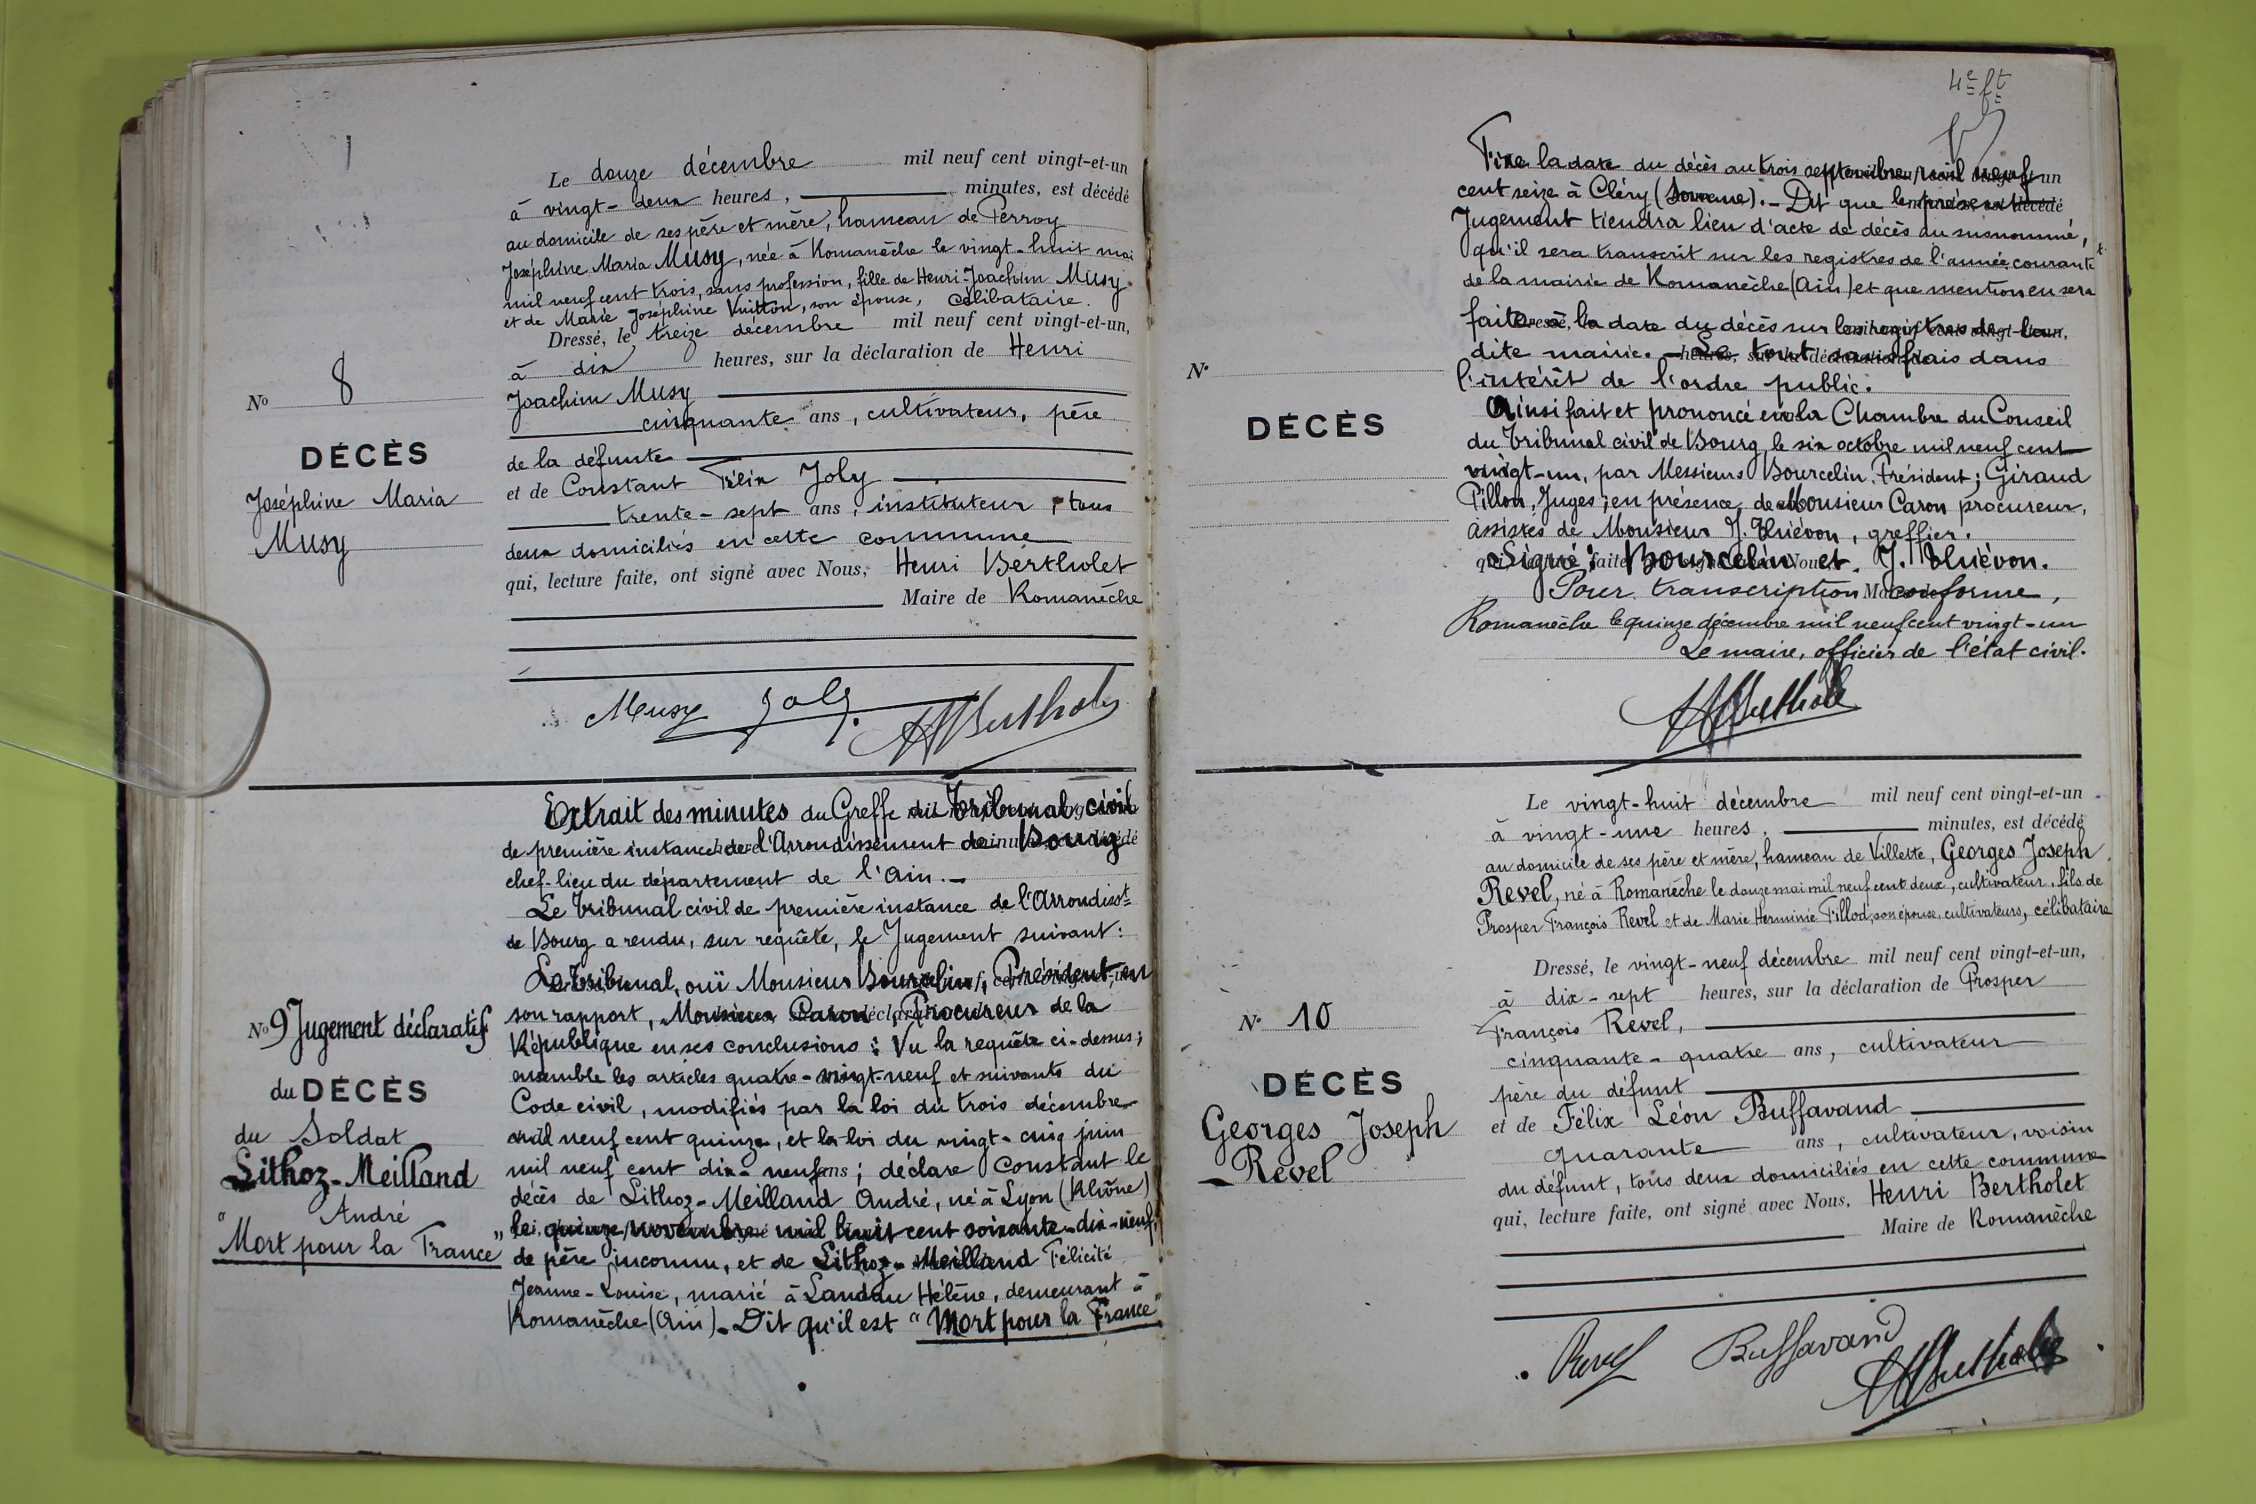 Le douze décembre mil neuf cent vingt-et-un
à vingt-deux heures, minutes, est décédé
au domicile de ses père et mère, hameau de Perroy
Joséphine Maria Musy, née à Romanèche le vingt-huit mai
mil neuf cent trois, sans profession, fille de Henri-Joachim Musy
et de Marie Joséphine Vuitton, son épouse, célibataire.
Dressé, le treize décembre mil neuf cent vingt-et-un,
à dix heures, sur la déclaration de Henri
Joachim Musy
cinquante ans, cultivateur, père
de la défunte
et de Constant Félix Joly
trente-sept ans, instituteur, tous
deux domiciliés en cette commune
qui, lecture faite, ont signé avec Nous, Henri Bertholet
Maire de Romanèche
Musy Joly HBertholet
No 8
DÉCÈS
Joséphine Maria
Musy
Extrait des minutes du Greffe du Tribunal civil
de première instance de l'Arrondissement de Bourg
chef-lieu du département de l'Ain.-
Le Tribunal civil de première instance de l'Arrondisst
de Bourg a rendu, sur requête, le Jugement suivant:
Le Tribunal, ouï Monsieur Bourcelin, Président, en
son rapport, Monsieur Caron, Procureur de la
République en ses conclusions: Vu la requête ci-dessus;
ensemble les articles quatre-vingt-neuf et suivants du
Code civil, modifiés par la loi du trois décembre
mil neuf cent quinze, et la loi du vingt-cinq juin
mil neuf cent dix-neuf ans; déclare constant le
décès de Lithoz-Meilland André, né à Lyon (Rhône)
le quinze novembre mil huit cent soixante-dix-neuf,
de père inconnu, et de Lithoz-Meilland Félicité
Jeanne-Louise, marié à Landau Hélène, demeurant à
Romanèche (Ain)_Dit qu'il est "Mort pour la France"
No 9 Jugement déclaratif
du DÉCÈS
du Soldat
Lithoz-Meilland
André
"Mort pour la France"
4e ft
Fixe la date du décès au trois septembre mil neuf
cent seize à Cléry (Somme)._ Dit que le présent
Jugement tiendra lieu d'acte de décès du susnommé,
qu'il sera transcrit sur les registres de l'année courante
de la mairie de Romanèche (Ain) et que mention en sera
faite à la date du décès sur les registres de la
dite mairie._ Le tout sans frais dans
l'intérêt de l'ordre public.
Ainsi fait et prononcé en la Chambre du Conseil
du Tribunal civil de Bourg le six octobre mil neuf cent
vingt-un, par Messieurs Bourcelin, Président; Giraud
Pillon, Juges; en présence de Monsieur Caron procureur,
assistés de Monsieur J. Thiévon, greffier.
Signé: Bourcelin et J. Thiévon.
Pour transcription conforme,
Romanèche le quinze décembre mil neuf cent vingt-un
Le maire, officier de l'état civil.
HBertholet
No
DÉCÈS
Le vingt-huit décembre mil neuf cent vingt-et-un
à vingt-une heures, minutes, est décédé
au domicile de ses père et mère, hameau de Villette, Georges Joseph
Revel, né à Romanèche le douze mai mil neuf cent deux, cultivateur, fils de
Prosper François Revel et de Marie Herminie Fillod, son épouse, cultivateurs, célibataire
Dressé, le vingt-neuf décembre mil neuf cent vingt-et-un,
à dix-sept heures, sur la déclaration de Prosper
François Revel,
cinquante-quatre ans, cultivateur
père du défunt
et de Félix Léon Buffavand
quarante ans, cultivateur, voisin
du défunt, tous deux domiciliés en cette commune
qui, lecture faite, ont signé avec Nous, Henri Bertholet
Maire de Romanèche
Revel Buffavand HBertholet
No 10
DÉCÈS
Georges Joseph
Revel